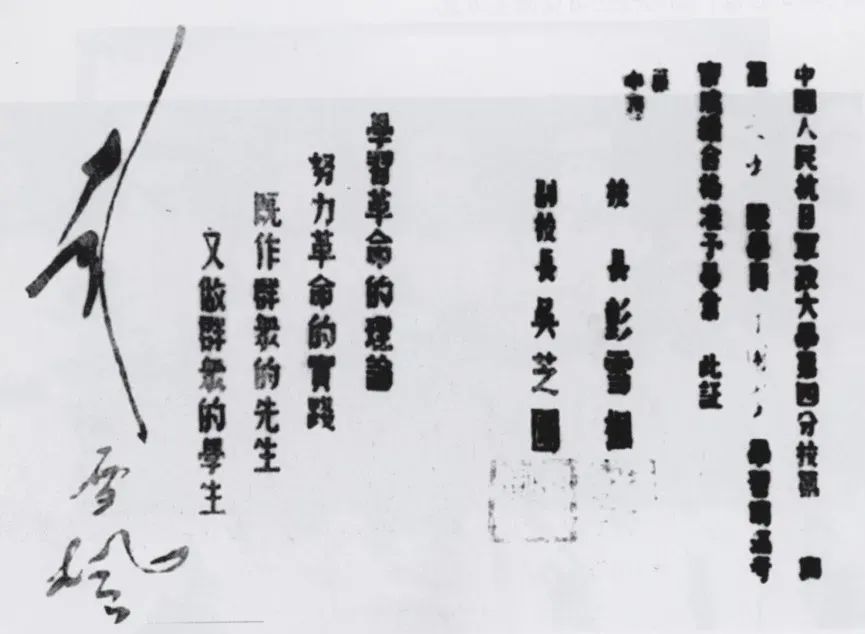 中國人民抗日軍政大學第四分校第 期
第 隊學員 學習期滿考
審成績合格准予畢業 此証
校長彭雪楓
副校長吳芝圃
學習革命的理論
努力革命的實踐
既作群衆的先生
又做群衆的學生
彭雪楓